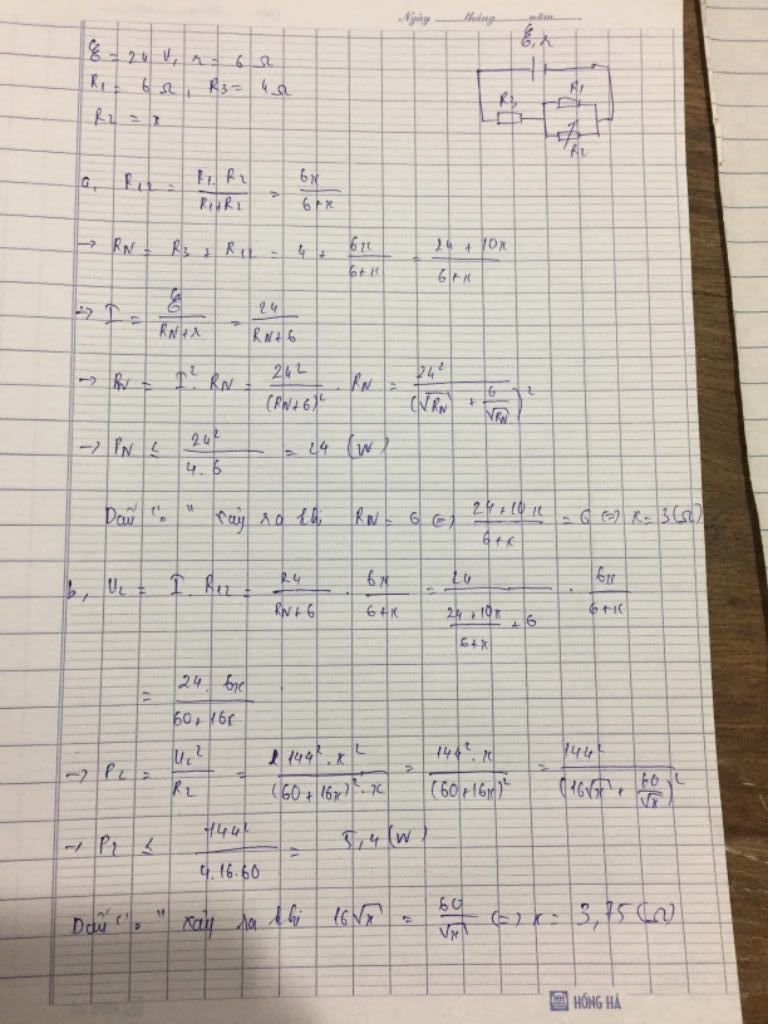 Ngày ........tháng........năm........
ℰ = 24 V, r = 6 Ω
R1 = 6 Ω, R3 = 4 Ω
R2 = x
ℰ, r
R3
R1
R2
a, R12 = R1. R2 / R1+R2 = 6x / 6+x
→ RN = R3 + R12 = 4 + 6x / 6+x = 24 + 10x / 6+x
=> I = ℰ / RN+r = 24 / RN+6
→ PN = I². RN = 24² / (RN+6)² . RN = 24² / (√RN + 6/√RN)²
→ PN ≤ 24² / 4.6 = 24 (W)
Dấu "=" xảy ra khi RN = 6 <=> 24+10x / 6+x = 6 <=> x = 3(Ω)
b, U2 = I. R12 = 24 / RN+6 . 6x / 6+x = 24 / (24+10x / 6+x + 6) . 6x / 6+x
= 24. 6x / 60+16x
→ P2 = U2² / R2 = 144². x² / (60+16x)². x = 144². x / (60+16x)² = 144² / (16√x + 60/√x)²
→ P2 ≤ 144² / 4.16.60 = 5,4 (W)
Dấu "=" xảy ra khi 16√x = 60/√x <=> x = 3,75 (Ω)
HH HỒNG HÀ